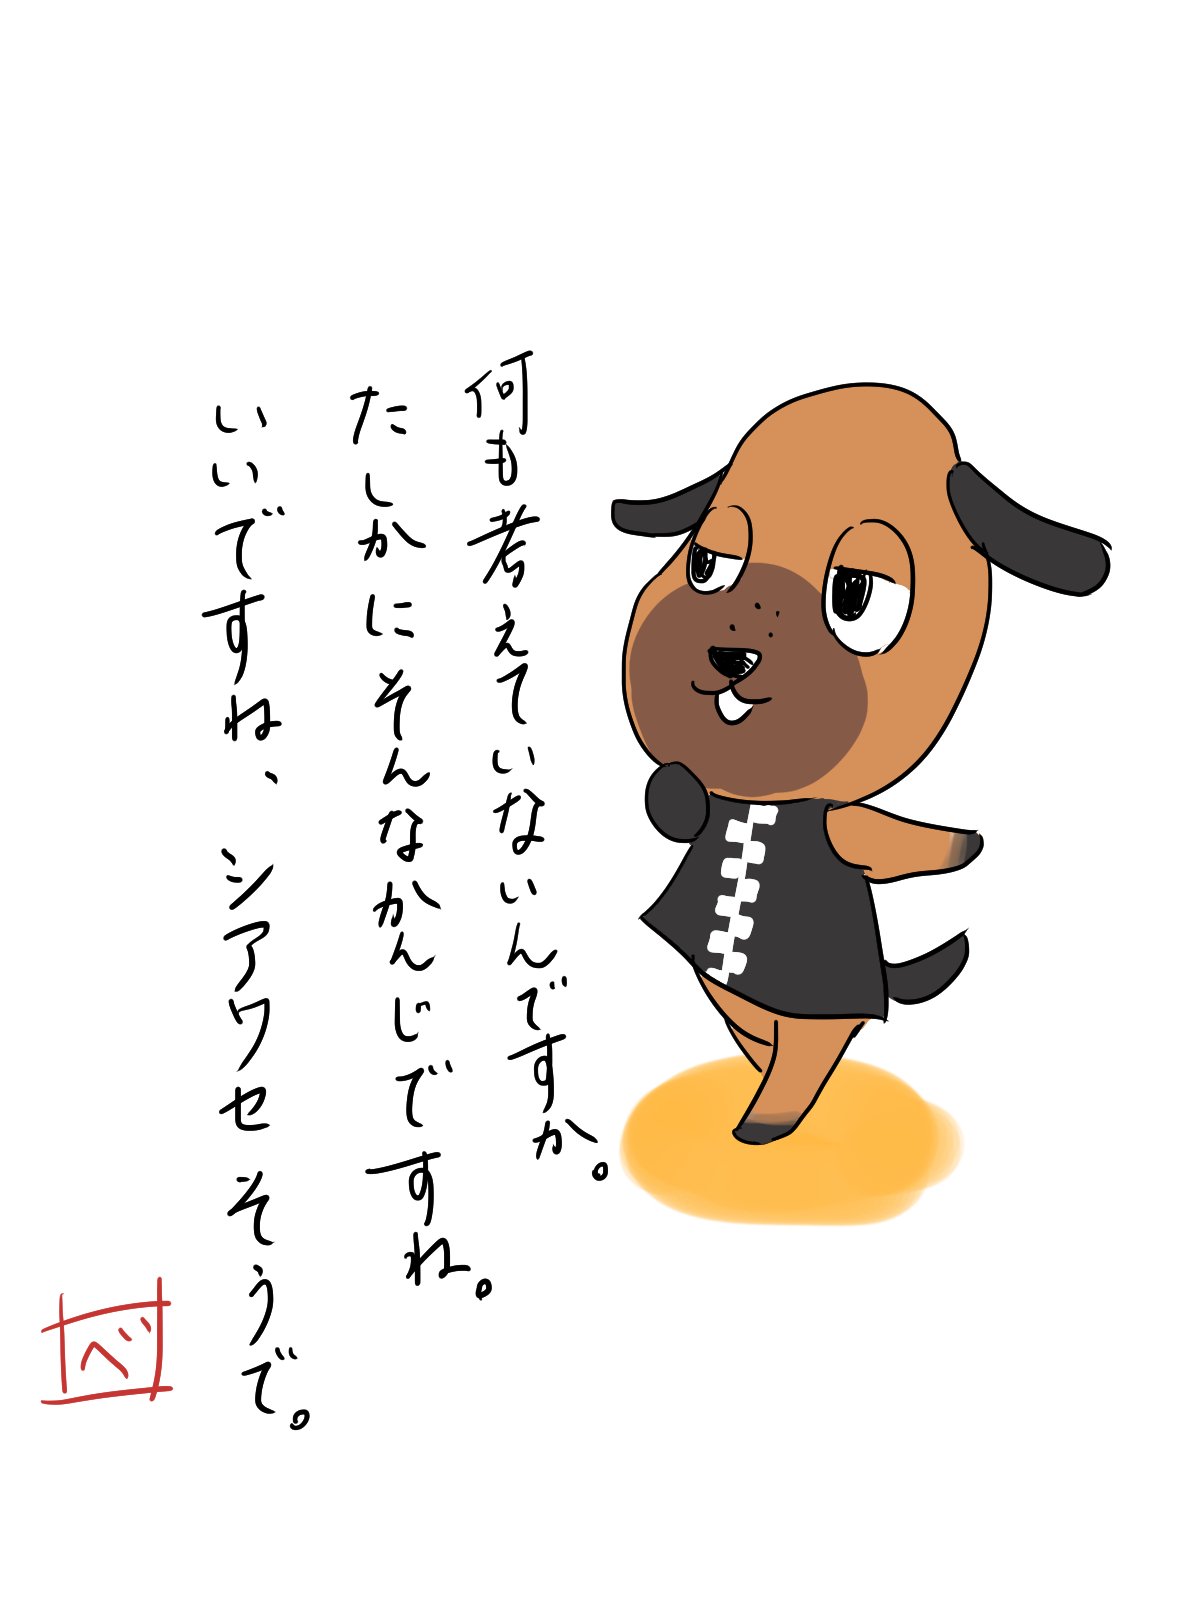 何も考えていないんですか。
たしかにそんなかんじですね。
いいですね、シアワセそうで。
べ